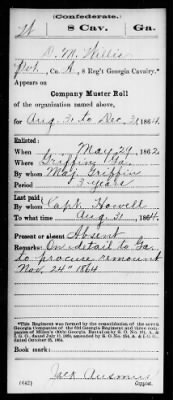 (Confederate.)
W 8 Cav. Ga.
D. M. Willis
Pvt, Co. A, 8 Reg't Georgia Cavalry.*
Appears on
Company Muster Roll
of the organization named above,
for Aug. 31 to Dec. 31, 1864.
Enlisted:
When May 29, 1862
Where Griffin Ga.
By whom Maj Griffin
Period 3 years
Last paid:
By whom Capt. Howell
To what time Aug. 31, 1864.
Present or absent Absent
Remarks: On detail to Ga.
to procure remount
Nov. 24" 1864
*This Regiment was formed by the consolidation of the seven
Georgia Companies of the 62d Georgia Regiment and three com-
panies of
Book mark:
Jack Ausmus
(642) Copyist.